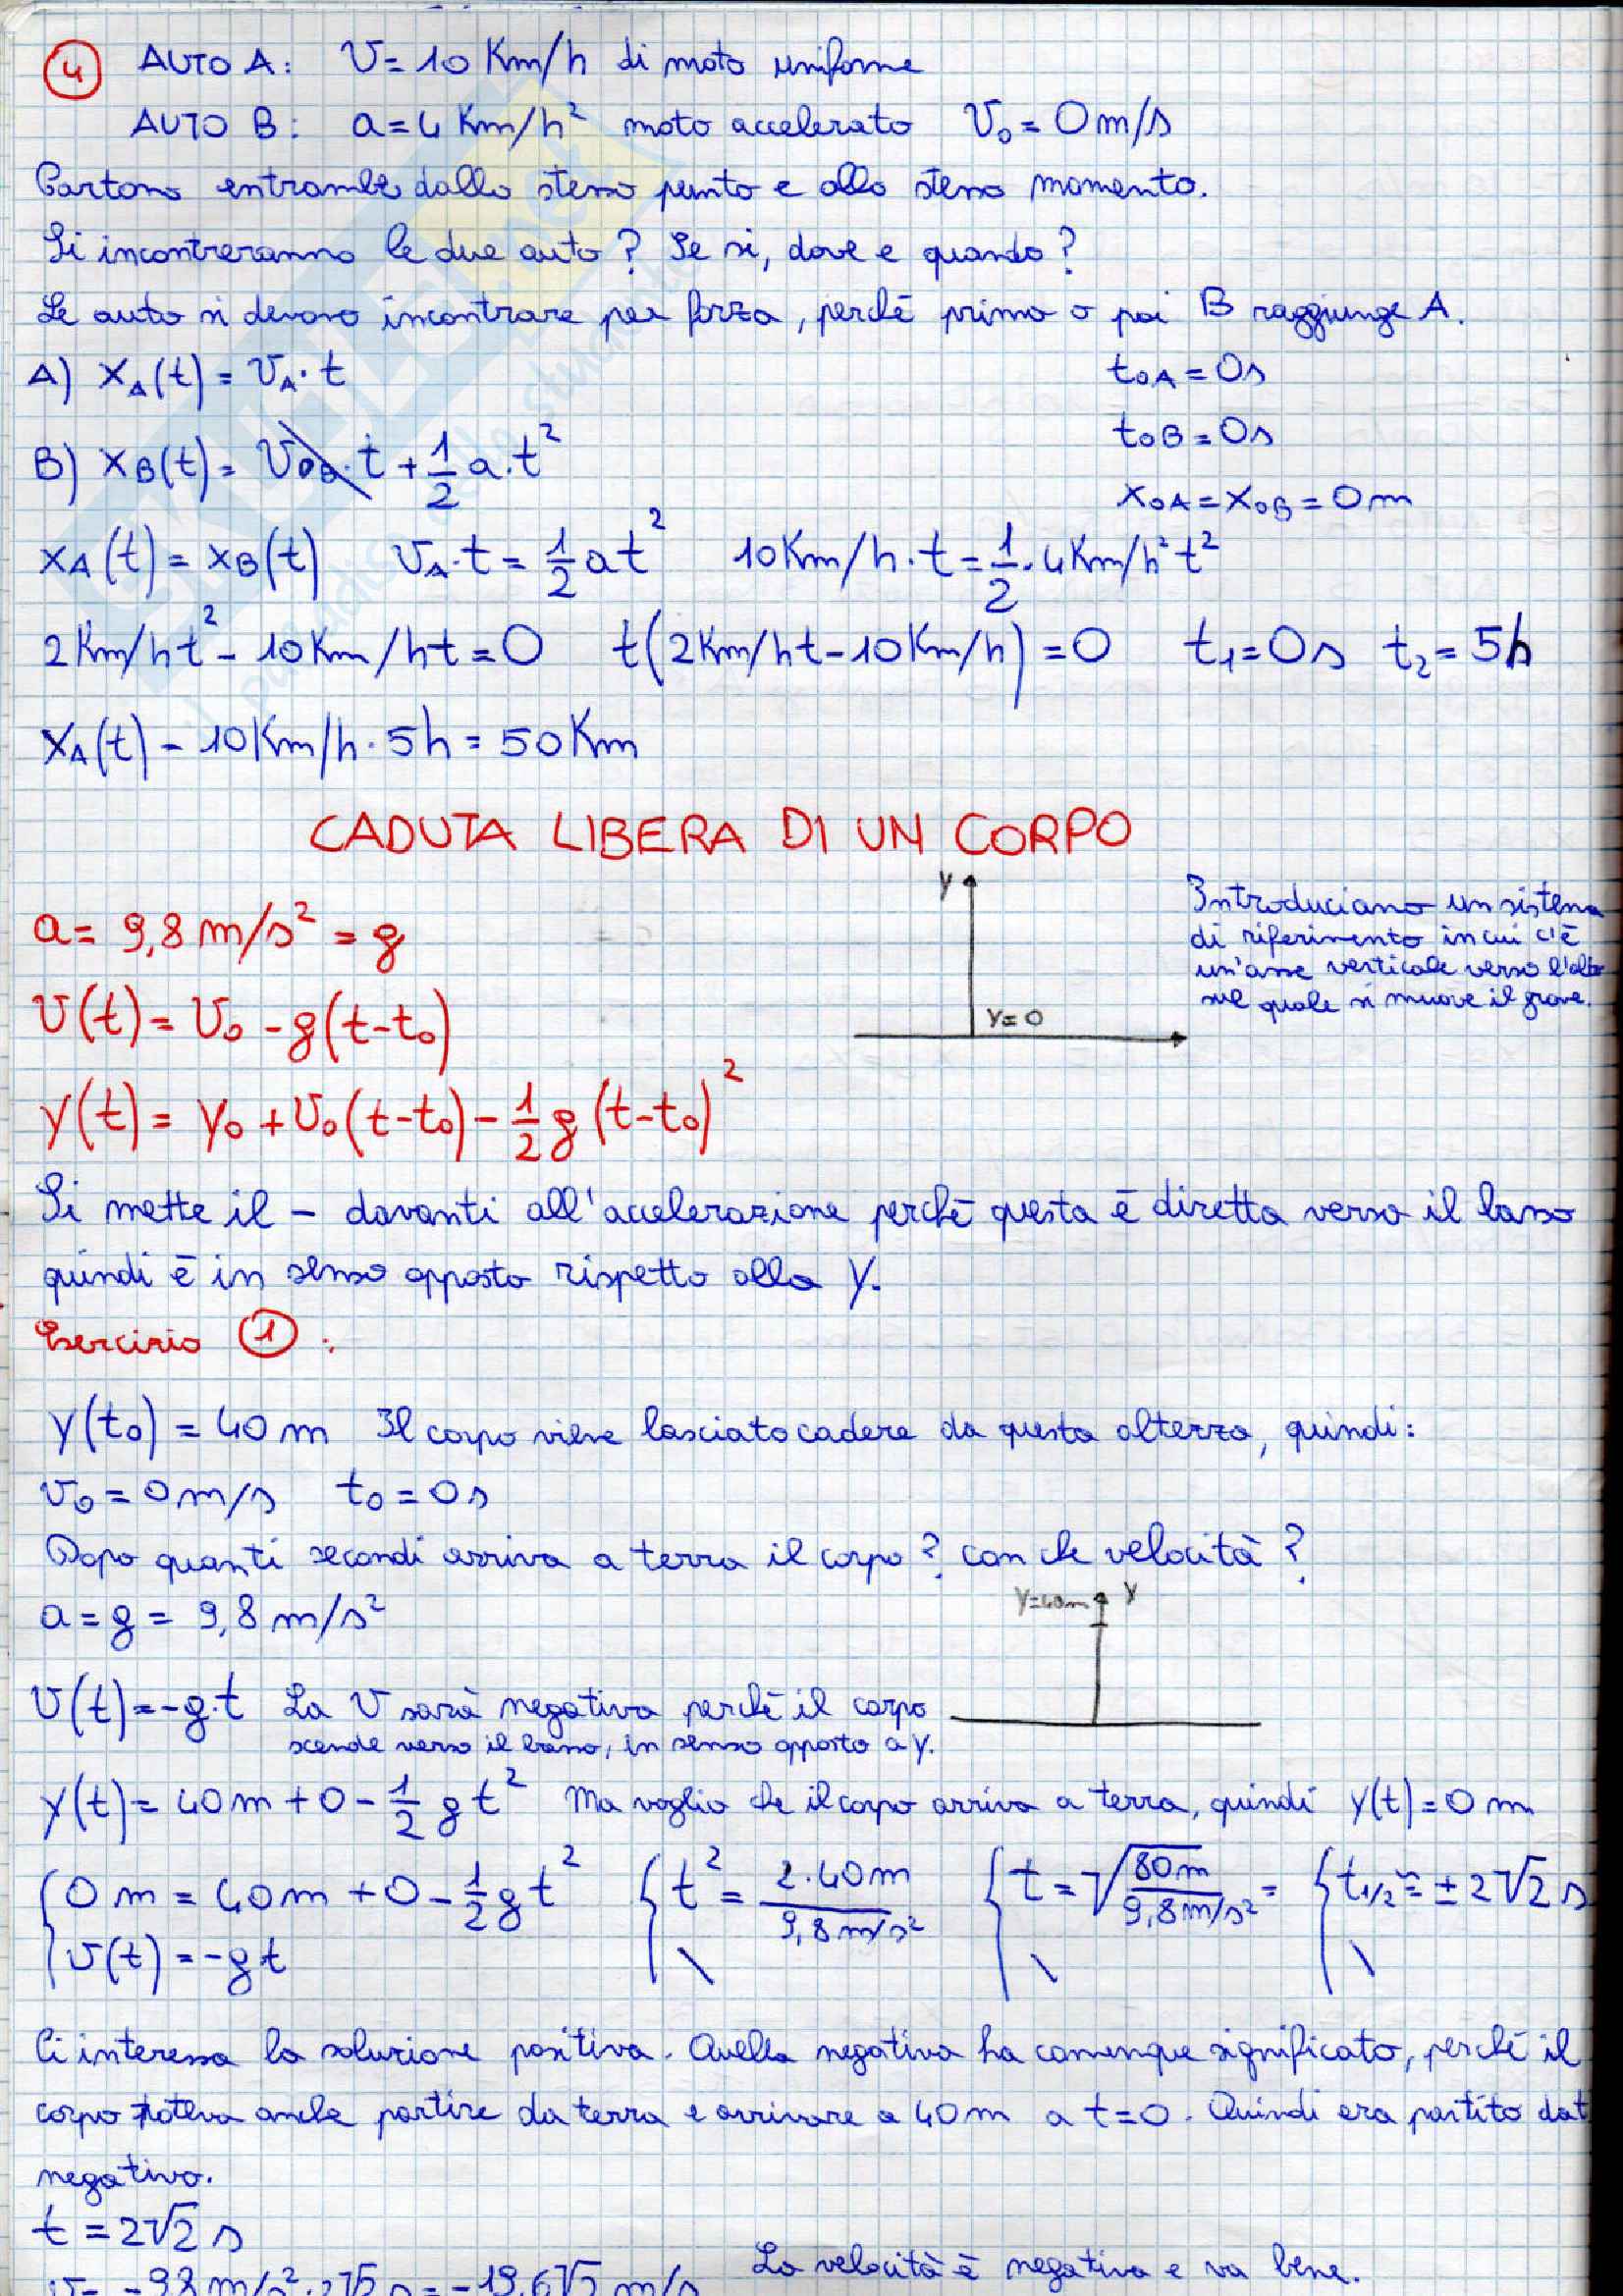 4 AUTO A: V=10 Km/h di moto uniforme
AUTO B: a=4 Km/h² moto accelerato V₀=0m/s
Partono entrambe dallo stesso punto e allo stesso momento.
Si incontreranno le due auto? Se si, dove e quando?
Le auto si devono incontrare per forza, perché prima o poi B raggiunge A.
A) X_A(t)=V_A·t t₀A=0s
t₀B=0s
B) X_B(t)=V₀B·t+1/2 a·t²
X₀A=X₀B=0m
X_A(t)=X_B(t) V_A·t=1/2 at² 10Km/h·t=1/2·4Km/h²t²
2Km/ht²-10Km/ht=0 t(2Km/ht-10Km/h)=0 t₁=0s t₂=5h
X_A(t)-10Km/h·5h=50Km
CADUTA LIBERA DI UN CORPO
a=9,8m/s²=g
V(t)=V₀-g(t-t₀)
y(t)=y₀+V₀(t-t₀)-1/2 g(t-t₀)²
y
y=0
Introduciamo un sistema
di riferimento in cui c'è
un'asse verticale verso l'alto
sul quale si muove il grave.
Si mette il - davanti all'accelerazione perché questa è diretta verso il basso
quindi è in senso opposto rispetto alla y.
Esercizio 1:
y(t₀)=40m Il corpo viene lasciato cadere da questa altezza, quindi:
V₀=0m/s t₀=0s
Dopo quanti secondi arriva a terra il corpo? con che velocità?
a=g=9,8m/s²
y=40m y
V(t)=-g·t La V sarà negativa perché il corpo
scende verso il basso, in senso opposto a y.
y(t)=40m+0-1/2 gt² Ma voglio che il corpo arriva a terra, quindi y(t)=0m
{0m=40m+0-1/2 gt² {t²=2·40m/9,8m/s² {t=√80m/9,8m/s²= {t₁/₂≃±2√2 s
V(t)=-gt \ \ \
Ci interessa la soluzione positiva. Quella negativa ha comunque significato, perché il
corpo poteva anche partire da terra e arrivare a 40m a t=0. Quindi era partito da t
negativo.
t=2√2 s
V=-9,8m/s²·2√2 s=-19,6√2 m/s La velocità è negativa e va bene.